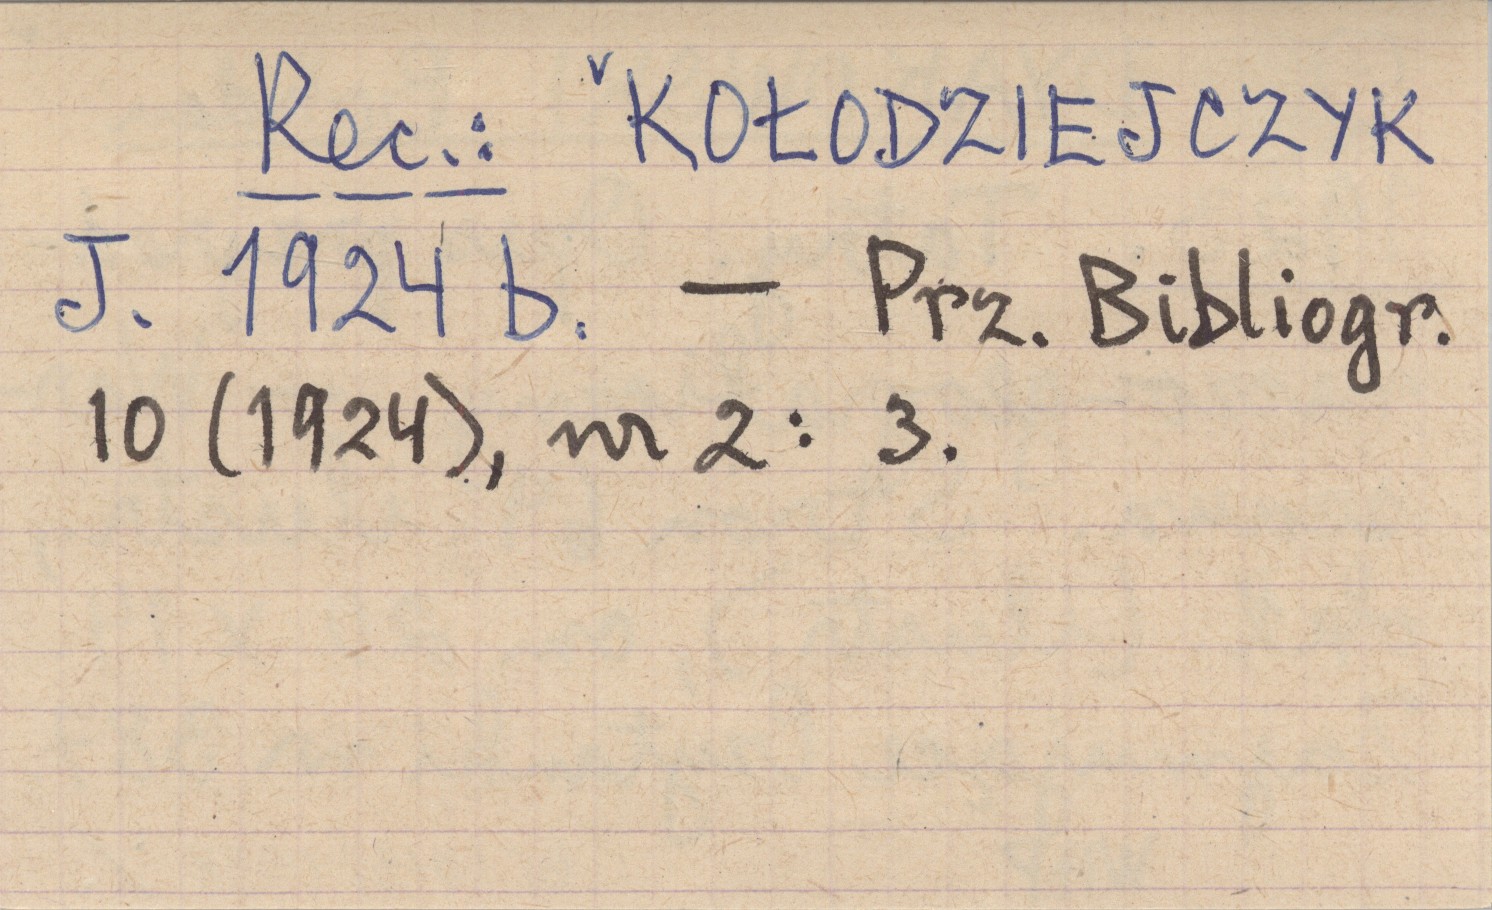 Rec.: ᵛKOŁODZIEJCZYK
J. 1924 b. — Prz. Bibliogr.
10 (1924), nr 2: 3.